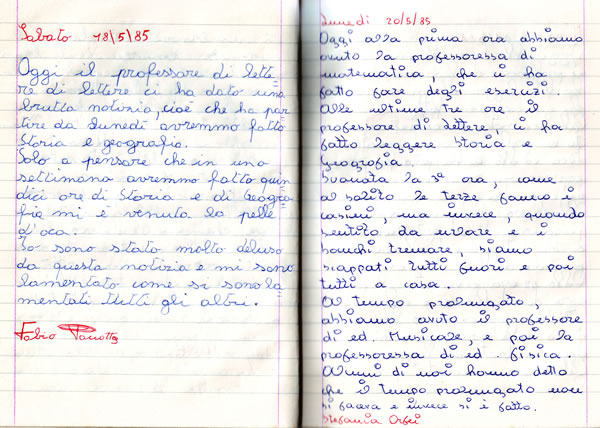 Sabato 18/5/85
Oggi il professore di lette
re di lettere ci ha dato una
brutta notizia, cioè che ha par
tire da Lunedì avremmo fatto
Storia e geografia.
Solo a pensare che in una
settimana avremmo fatto quin
dici ore di Storia e di Geogra
fia mi è venuta la pelle
d'oca.
Io sono stato molto deluso
da questa notizia e mi sono
lamentato come si sono la
mentati tutti gli altri.
Fabio
Lunedì 20/5/85
Oggi alla prima ora abbiamo
avuto la professoressa di
matematica, che ci ha
fatto fare degli esercizi.
Alle ultime tre ore il
professore di Lettere, ci ha
fatto leggere Storia e
Geografia.
Suonata la 3ª ora, come
al solito le terze fanno i
casini, ma invece, quando
sentito da urlare e i
banchi tremare, siamo
scappati tutti fuori e poi
tutti a casa.
Al tempo prolungato,
abbiamo avuto il professore
di ed. Musicale, e poi la
professoressa di ed. fisica.
Alcuni di noi hanno detto
che il tempo prolungato non
si faceva e invece si è fatto.
Stefania Orfei